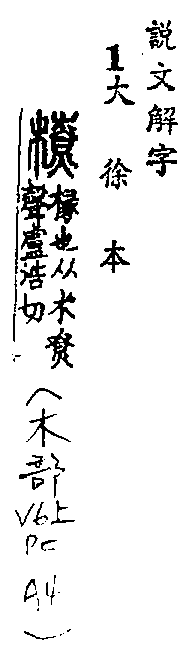 説文解字
1大徐本
橑椽也从木尞
聲盧浩切
(木部
V6上
PC
A4)